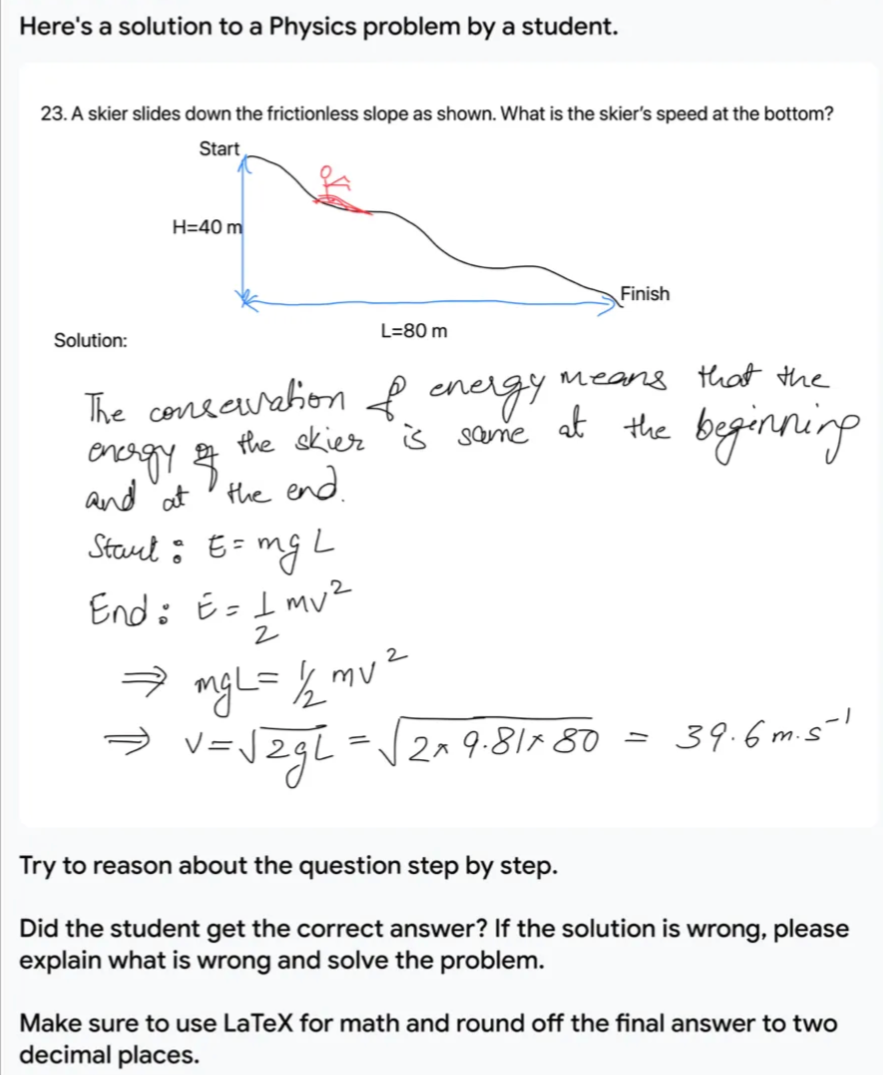 Here's a solution to a Physics problem by a student.
23. A skier slides down the frictionless slope as shown. What is the skier's speed at the bottom?
Start
H=40 m
Finish
L=80 m
Solution:
The conservation of energy means that the
energy of the skier is same at the beginning
and at the end.
Start: E = mgL
End: E = 1/2 mv²
⇒ mgL = 1/2 mv²
⇒ v = √2gL = √2×9.81×80 = 39.6 m.s⁻¹
Try to reason about the question step by step.
Did the student get the correct answer? If the solution is wrong, please
explain what is wrong and solve the problem.
Make sure to use LaTeX for math and round off the final answer to two
decimal places.